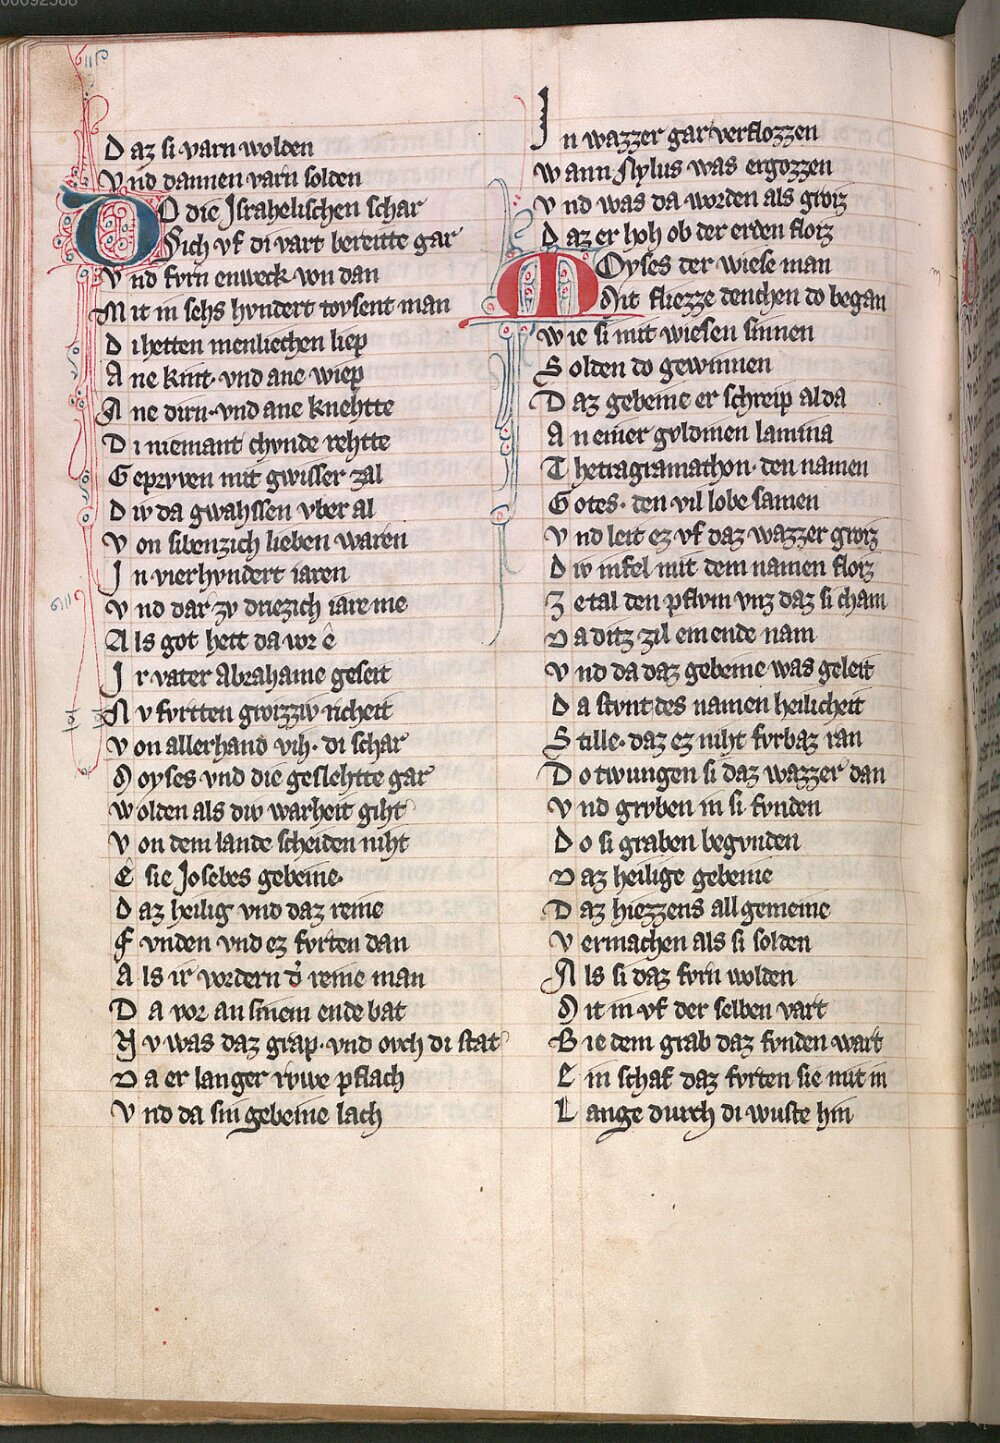 Daz si varn wolden
Vnd dannen varn solden
DO die Jsrahelischen schar
Sich vf di vart bereitte gar
Vnd fvrn enweck von dan
Mit in sehs hvndert tovsent man
Di hetten menliechen liep
Ane kint· vnd ane wiep
Ane dirn· vnd ane knehtte
Di niemant chvnde rehtte
Geprvven mit gwisser zal
Div da gwahssen vber al
Von sibenzich lieben waren
Jn vierhvndert iaren
Vnd dar zv driezich iare me
Als got hett da vor ê
Jr vater Abrahame geseit
Nv fvrtten grozziv richeit
Von allerhand vih· di schar
Moyses vnd die geslehtte gar
Wolden als div warheit giht
Von dem lande scheiden niht
Ê sie Josebes gebeine·
Daz heilig vnd daz reine
Fvnden vnd ez fvrten dan
Als ir vordern d' reine man
Da vor an sinem ende bat
Nv was daz grap· vnd ovch di stat
Da er langer rvwe pflach
Vnd da sin gebeine lach
Jn wazzer gar verflozzen
Wann Nylus was ergozzen
Vnd was da worden als groz
Daz er hoh ob der erden floz
MOyses der wiese man
Mit fliezze denchen do began
Wie si mit wiesen sinnen
Solden do gewinnen
Daz gebeine er schreip alda
An einer gvldinen lamina
Thetragramathon· den namen
Gotes· den vil lobe samen
Vnd leit ez vf daz wazzer groz
Div insel mit dem namen floz
Zetal den pflvm vnz daz si cham
Da ditz zil ein ende nam
Vnd da daz gebeine was geleit
Da stvnt des namen heilicheit
Stille· daz ez niht fvrbaz ran
Do twungen si daz wazzer dan
Vnd grvben in si fvnden
Do si graben begvnden
Daz heilige gebeine
Daz hiezzens all gemeine
Vermachen als si solden
Als si daz fvrn wolden
Mit in vf der selben vart
Bie dem grab daz fvnden wart
Ein schaf daz fvrten sie mit in
Lange durch di wuste hin